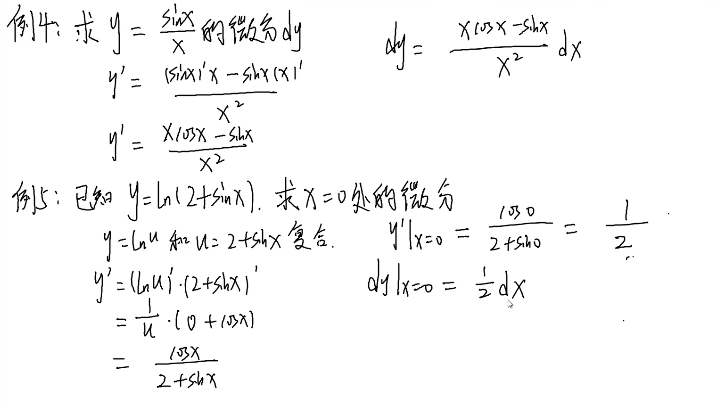 例4: 求 y = sinx/x 的微分dy
y' = ((sinx)'x - sinx(x)')/x²
y' = (xcosx - sinx)/x²
dy = (xcosx - sinx)/x² dx
例5: 已知 y=ln(2+sinx). 求x=0处的微分
y=lnu 和 u=2+sinx 复合.
y' = (lnu)'·(2+sinx)'
= 1/u·(0+cosx)
= cosx/(2+sinx)
y'|x=0 = cos0/(2+sin0) = 1/2
dy|x=0 = 1/2 dx